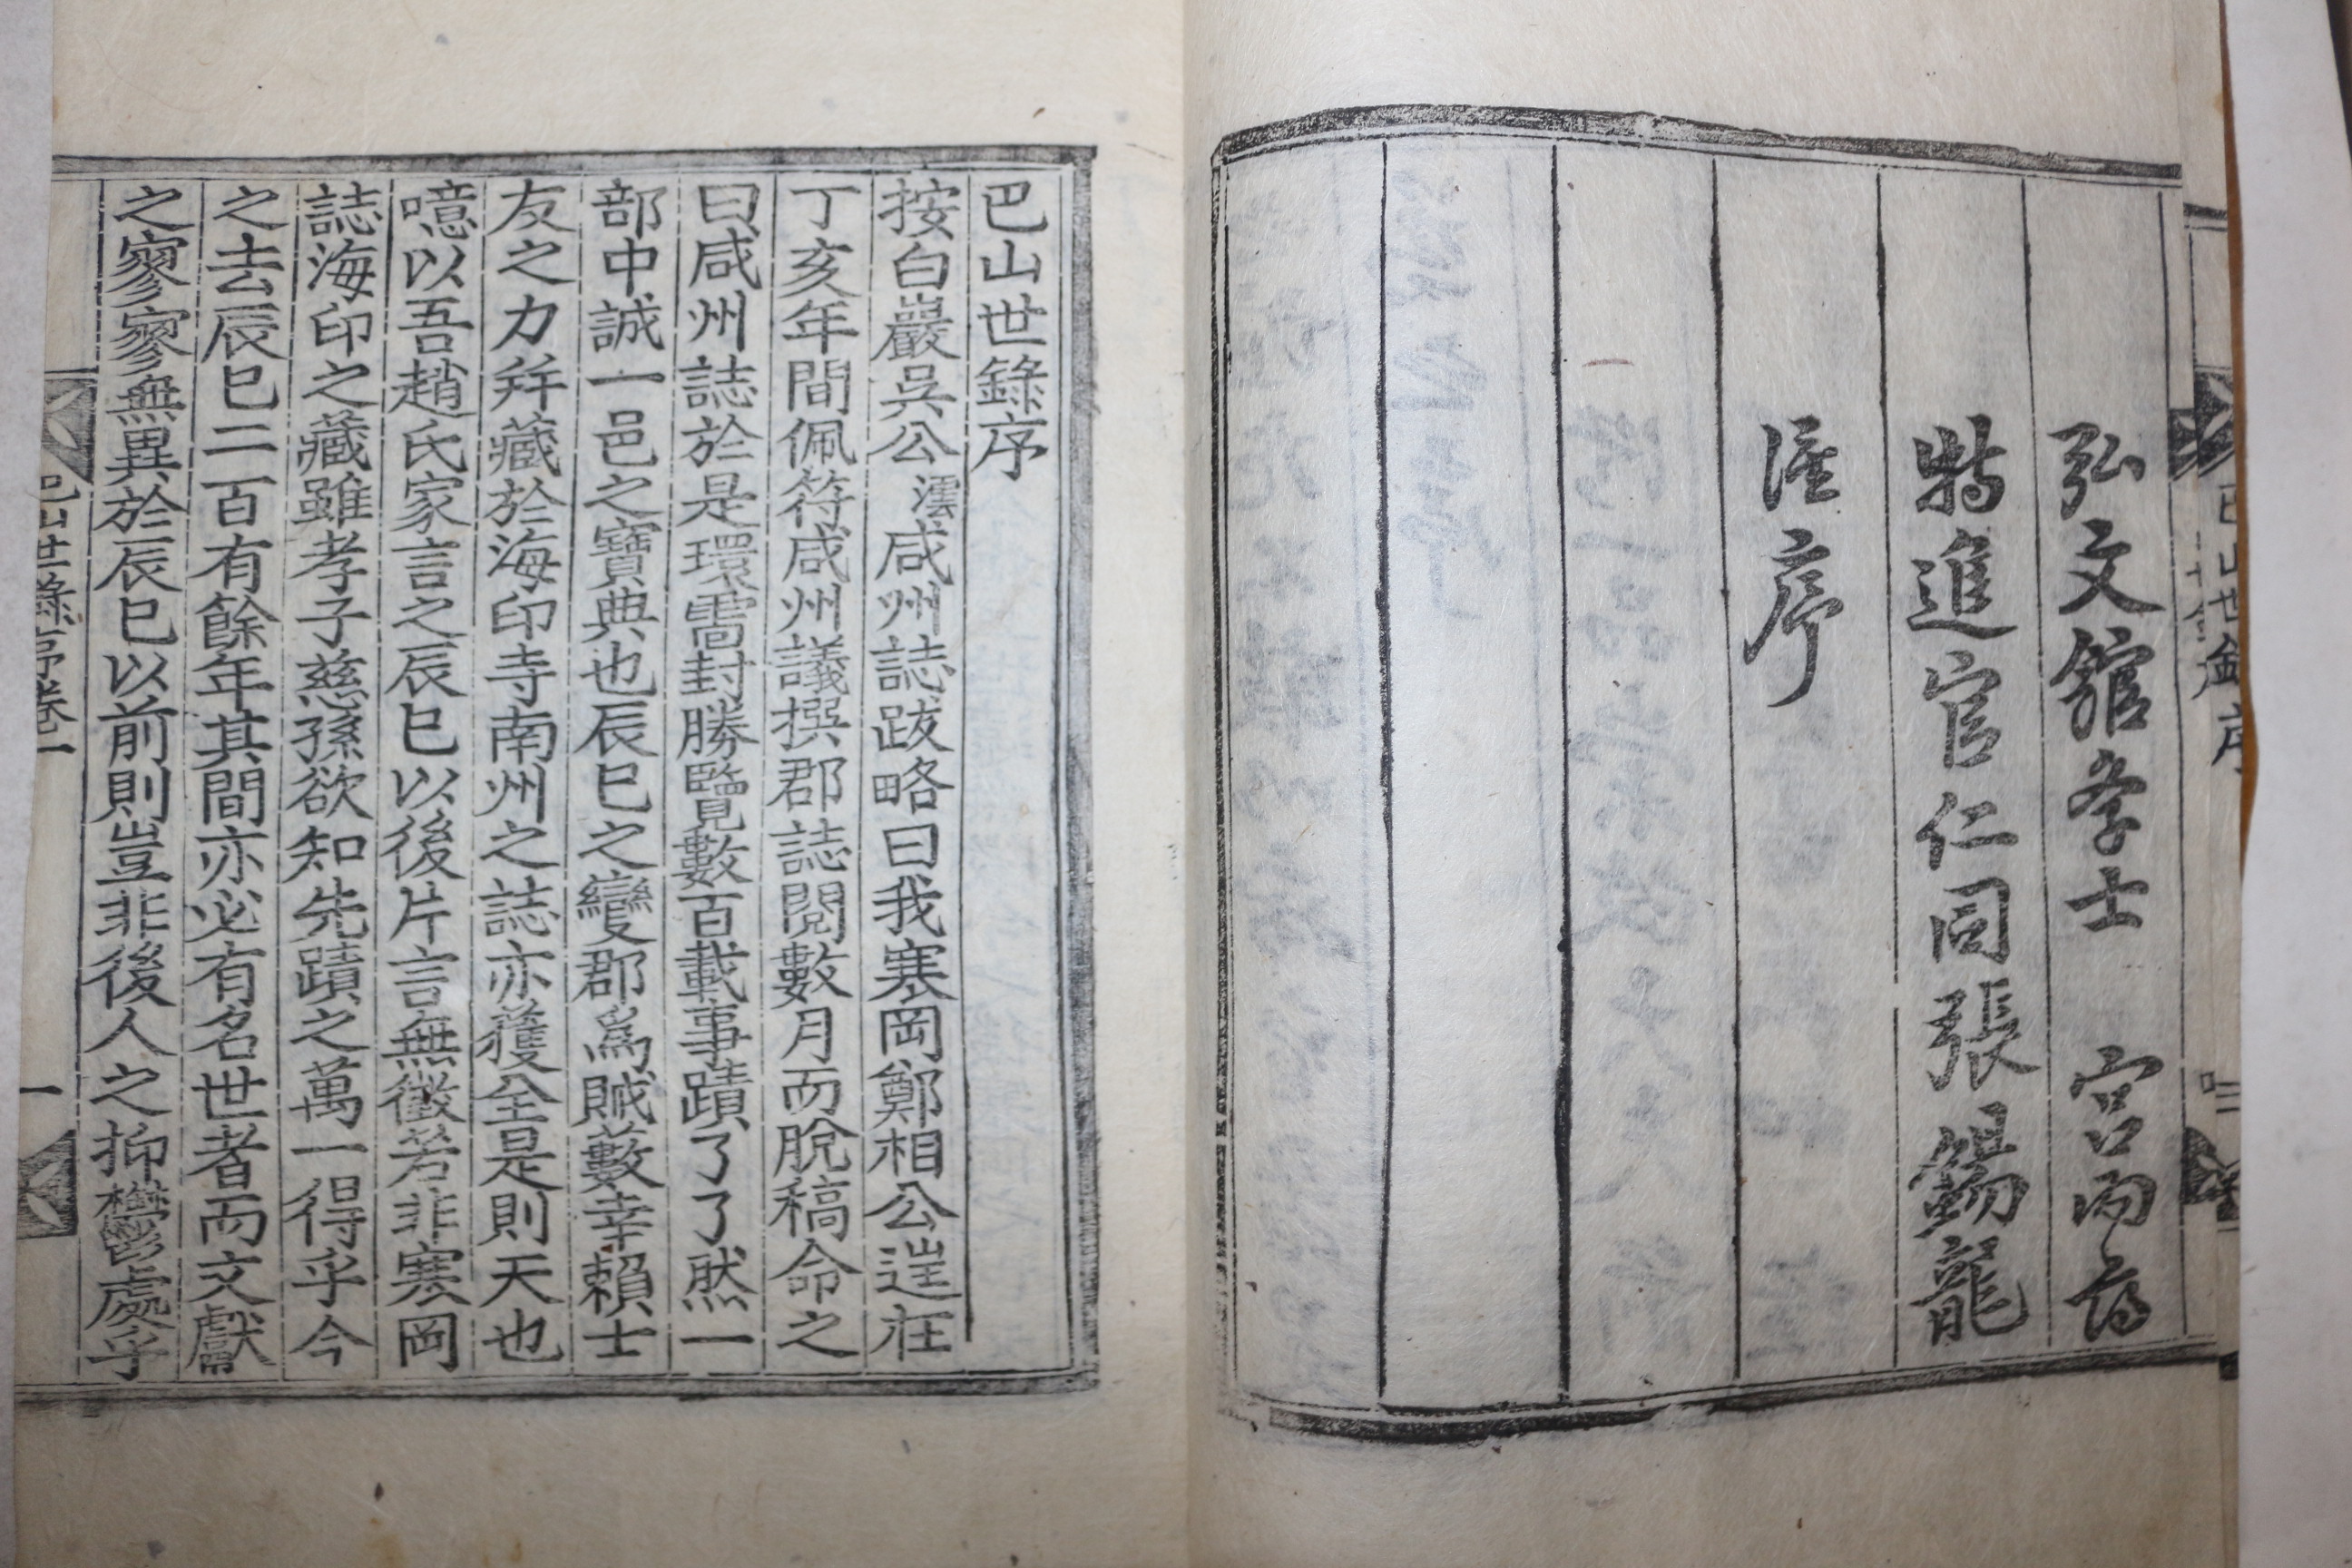 弘文館學士 宮內府
特進官仁同張錫龍
謹序
巴山世錄序
按白巖吳公澐咸州誌跋略曰我寒岡鄭相公逑在
丁亥年間佩符咸州議撰郡誌閱數月而脫稿命之
曰咸州誌於是環雷封勝覽數百載事蹟了了然一
部中誠一邑之寶典也辰巳之變郡爲賊藪幸賴士
友之力幷藏於海印寺南州之誌亦獲全是則天也
噫以吾趙氏家言之辰巳以後片言無徵若非寒岡
誌海印之藏雖孝子慈孫欲知先蹟之萬一得乎今
之去辰巳二百有餘年其間亦必有名世者而文獻
之寥寥無異於辰巳以前則豈非後人之抑鬱處乎
巴山世錄序卷一
一